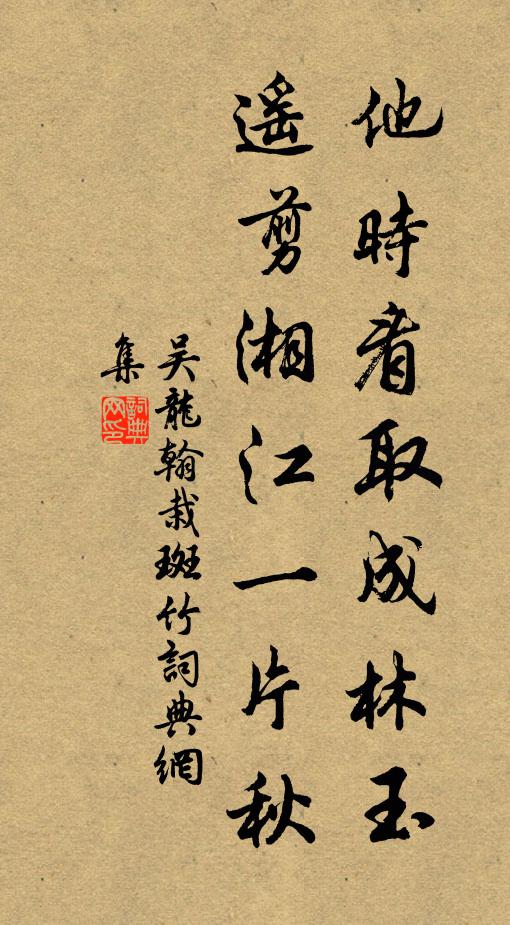 他時看取成林玉
遥剪湘江一片秋
吴龍翰栽斑竹詞典網
集
詞典
网印